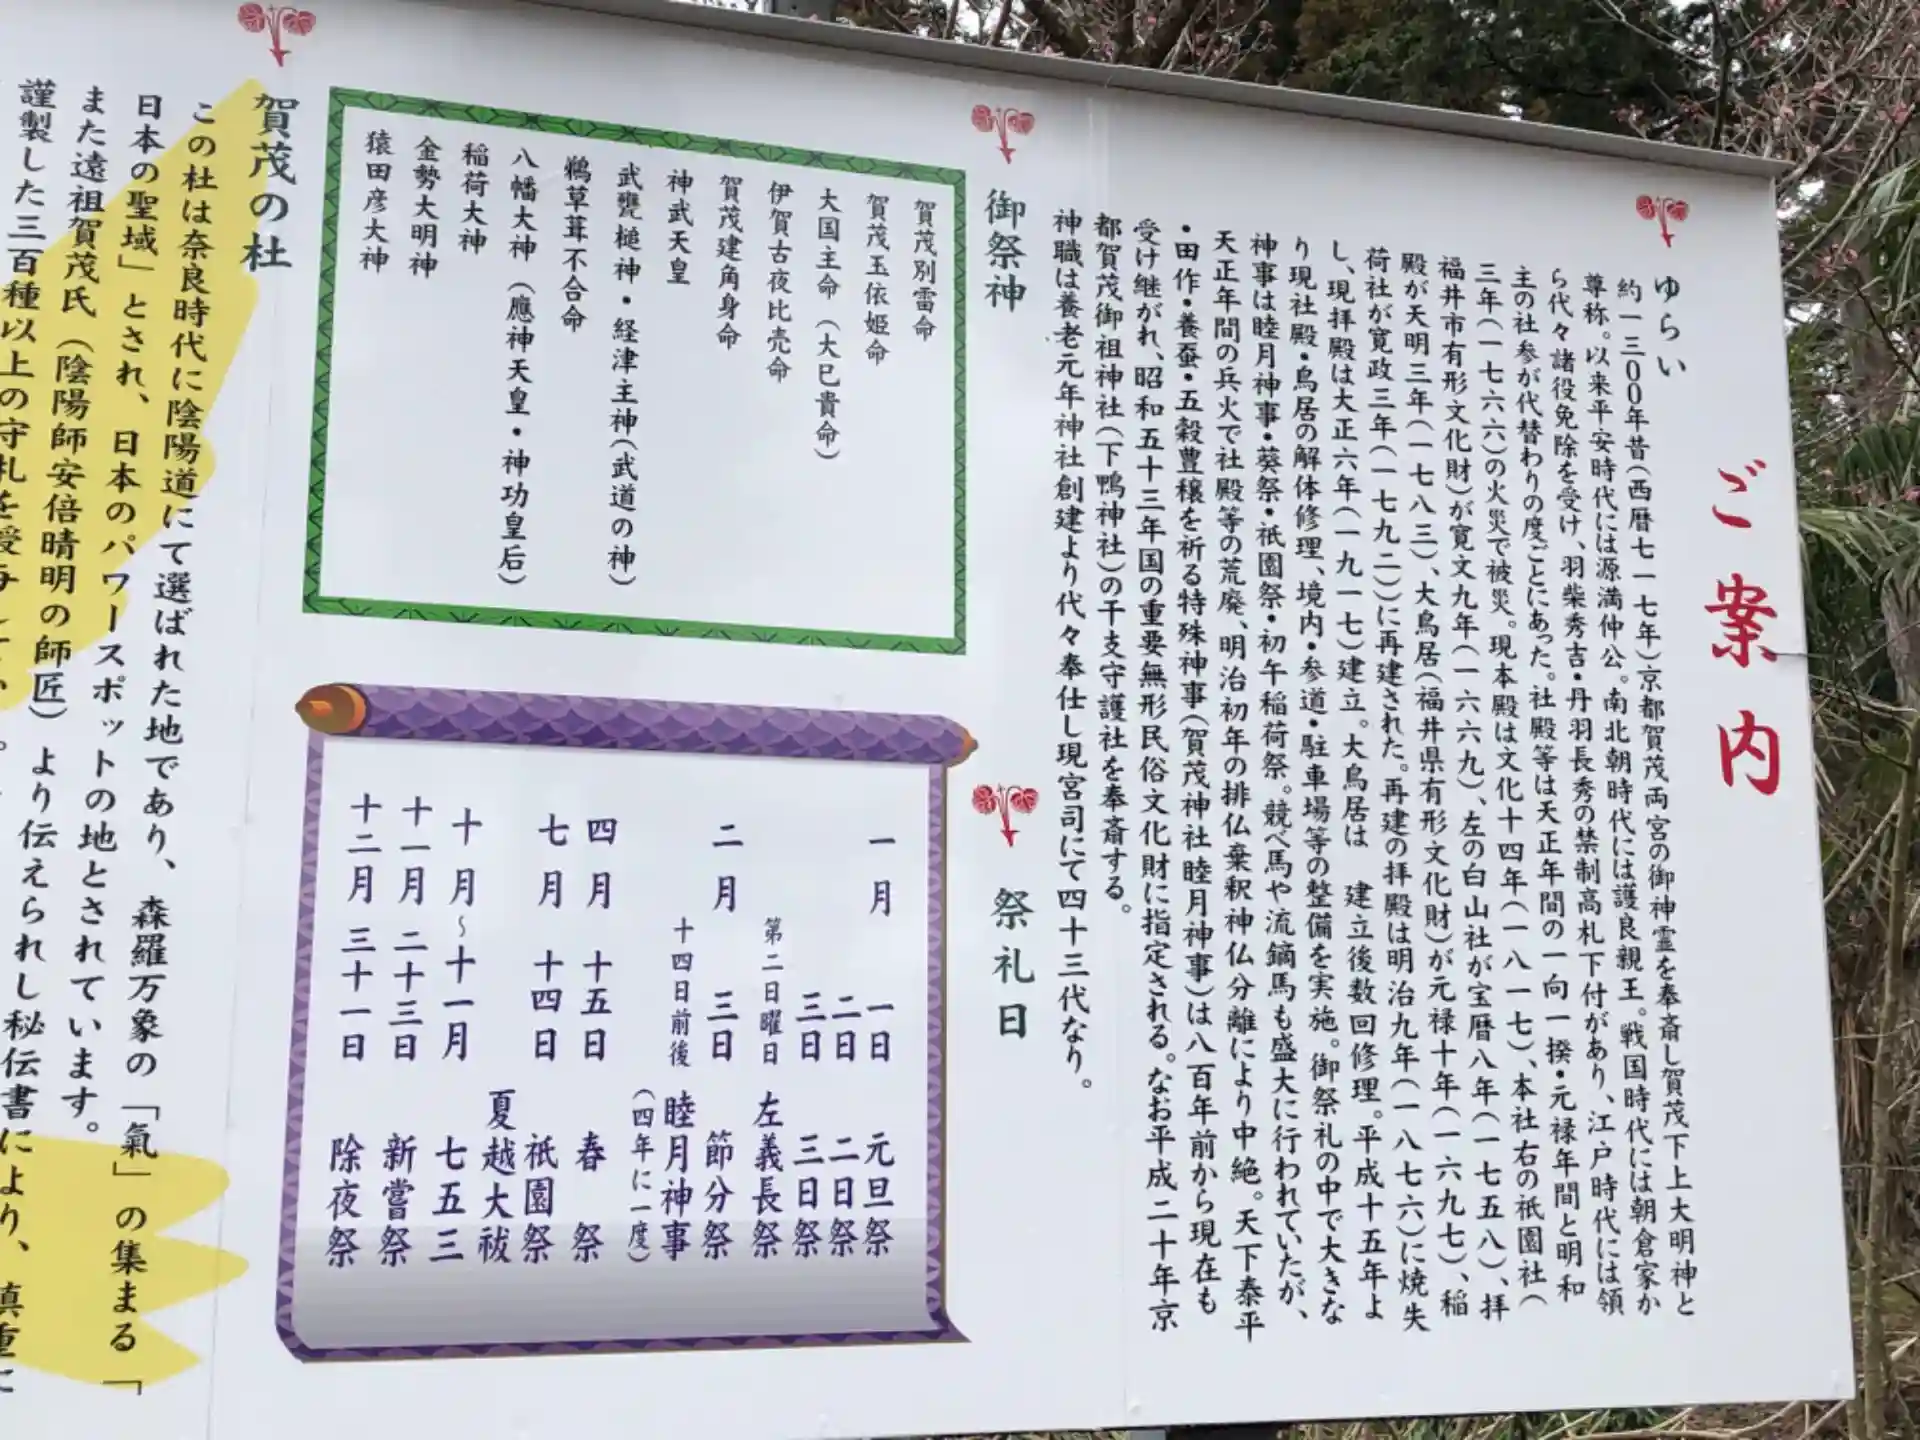 ご案内
ゆらい
約一三〇〇年昔(西暦七一七年)京都賀茂両宮の御神霊を奉斎し賀茂下上大明神と
尊称。以来平安時代には源満仲公。南北朝時代には護良親王。戦国時代には朝倉家か
ら代々諸役免除を受け、羽柴秀吉・丹羽長秀の禁制高札下付があり、江戸時代には領
主の社参が代替わりの度ごとにあった。社殿等は天正年間の一向一揆・元禄年間と明和
三年(一七六六)の火災で被災。現本殿は文化十四年(一八一七)、本社右の祇園社(
福井市有形文化財)が寛文九年(一六六九)、左の白山社が宝暦八年(一七五八)、拝
殿が天明三年(一七八三)、大鳥居(福井県有形文化財)が元禄十年(一六九七)、稲
荷社が寛政三年(一七九二))に再建された。再建の拝殿は明治九年(一八七六)に焼失
し、現拝殿は大正六年(一九一七)建立。大鳥居は 建立後数回修理。平成十五年よ
り現社殿・鳥居の解体修理、境内・参道・駐車場等の整備を実施。御祭礼の中で大きな
神事は睦月神事・葵祭・祇園祭・初午稲荷祭。競べ馬や流鏑馬も盛大に行われていたが、
天正年間の兵火で社殿等の荒廃、明治初年の排仏棄釈神仏分離により中絶。天下泰平
・田作・養蚕・五穀豊穣を祈る特殊神事(賀茂神社睦月神事)は八百年前から現在も
受け継がれ、昭和五十三年国の重要無形民俗文化財に指定される。なお平成二十年京
都賀茂御祖神社(下鴨神社)の干支守護社を奉斎する。
神職は養老元年神社創建より代々奉仕し現宮司にて四十三代なり。
御祭神
賀茂別雷命
賀茂玉依姫命
大国主命(大巳貴命)
伊賀古夜比売命
賀茂建角身命
神武天皇
武甕槌神・経津主神(武道の神)
鵜草葺不合命
八幡大神(應神天皇・神功皇后)
稲荷大神
金勢大明神
猿田彦大神
祭礼日
一月 一日 元旦祭
二日 二日祭
三日 三日祭
第二日曜日 左義長祭
二月 三日 節分祭
十四日前後 睦月神事
(四年に一度)
四月 十五日 春祭
七月 十四日 祇園祭
夏越大祓
十月~十一月 七五三
十一月 二十三日 新嘗祭
十二月 三十一日 除夜祭
賀茂の杜
この杜は奈良時代に陰陽道にて選ばれた地であり、森羅万象の「氣」の集まる「
日本の聖域」とされ、日本のパワースポットの地とされています。
また遠祖賀茂氏(陰陽師安倍晴明の師匠)より伝えられし秘伝書により、慎重に
謹製した三百種以上の守札を授与して